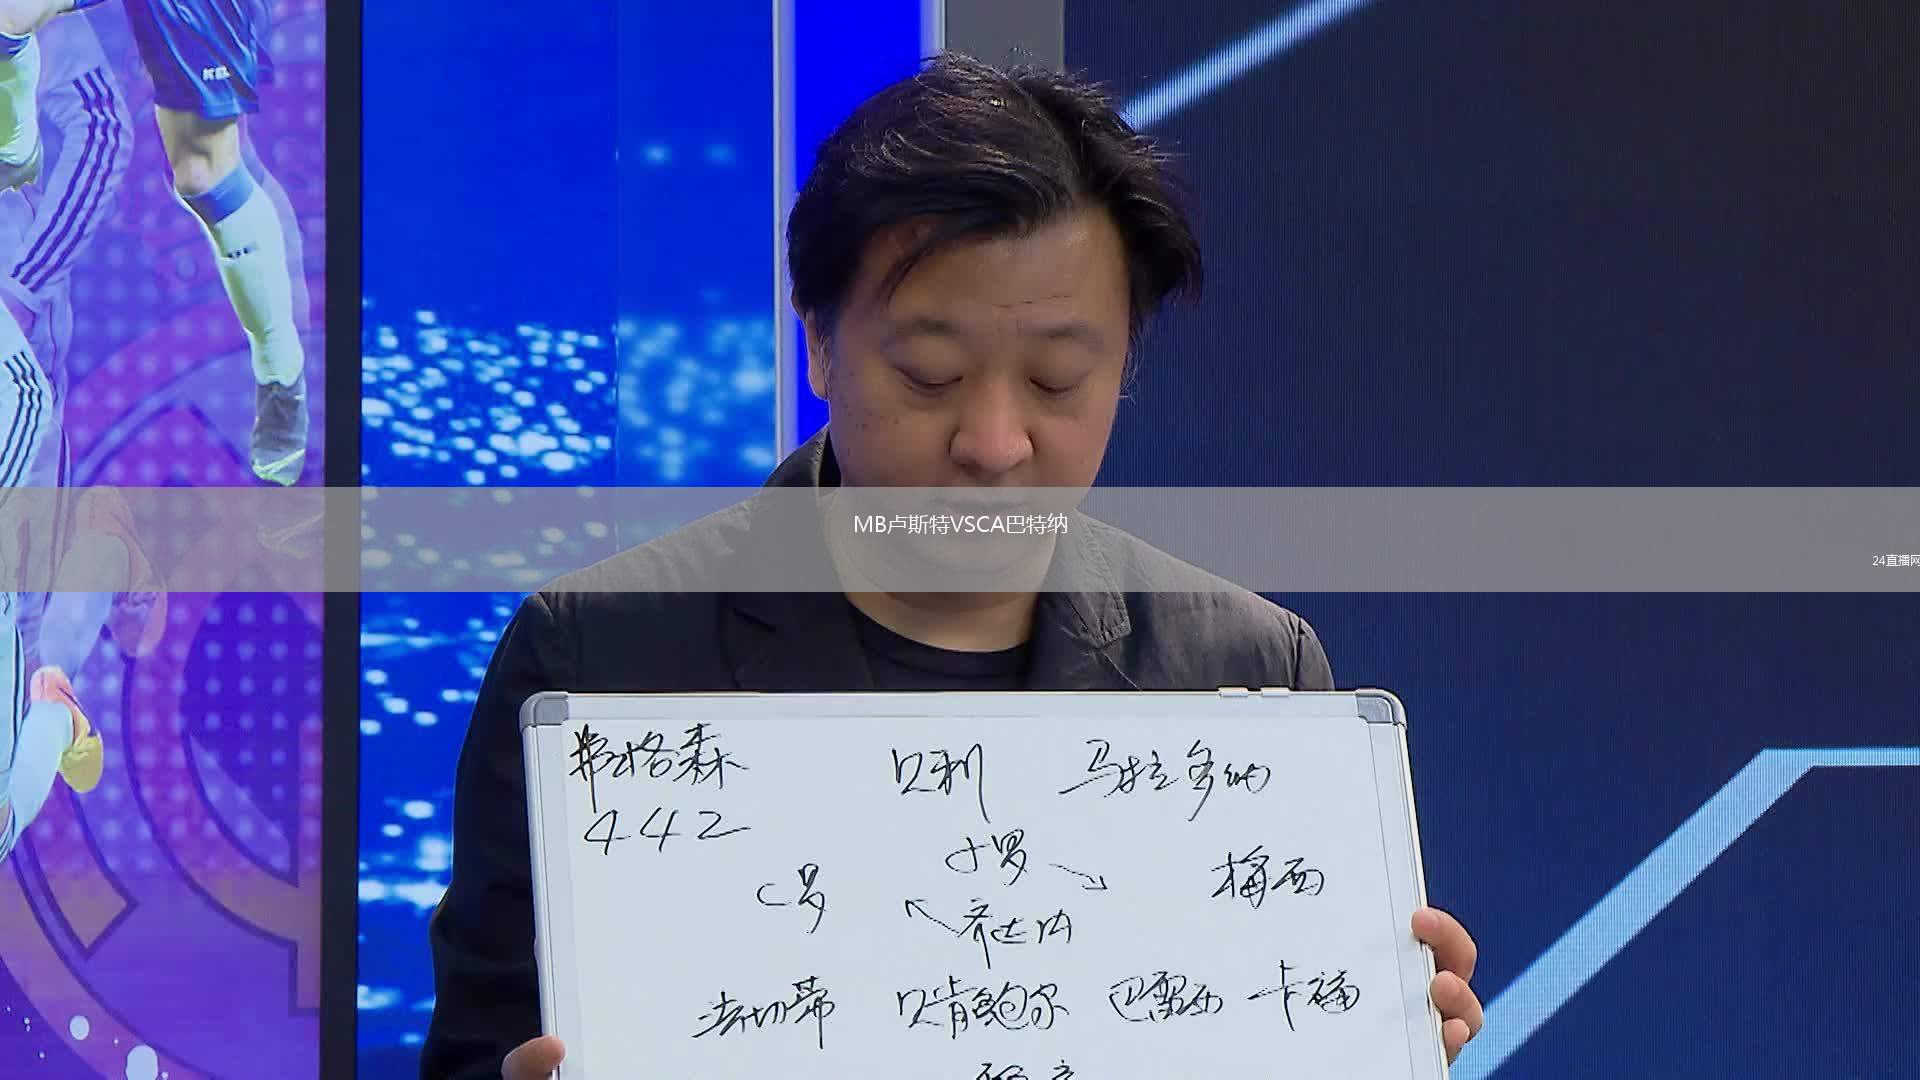 MB卢斯特VSCA巴特纳
24直播网
弗格森 贝利 马拉多纳
442
小罗
C罗 梅西
齐达内
法切蒂 贝肯鲍尔 巴雷西 卡福